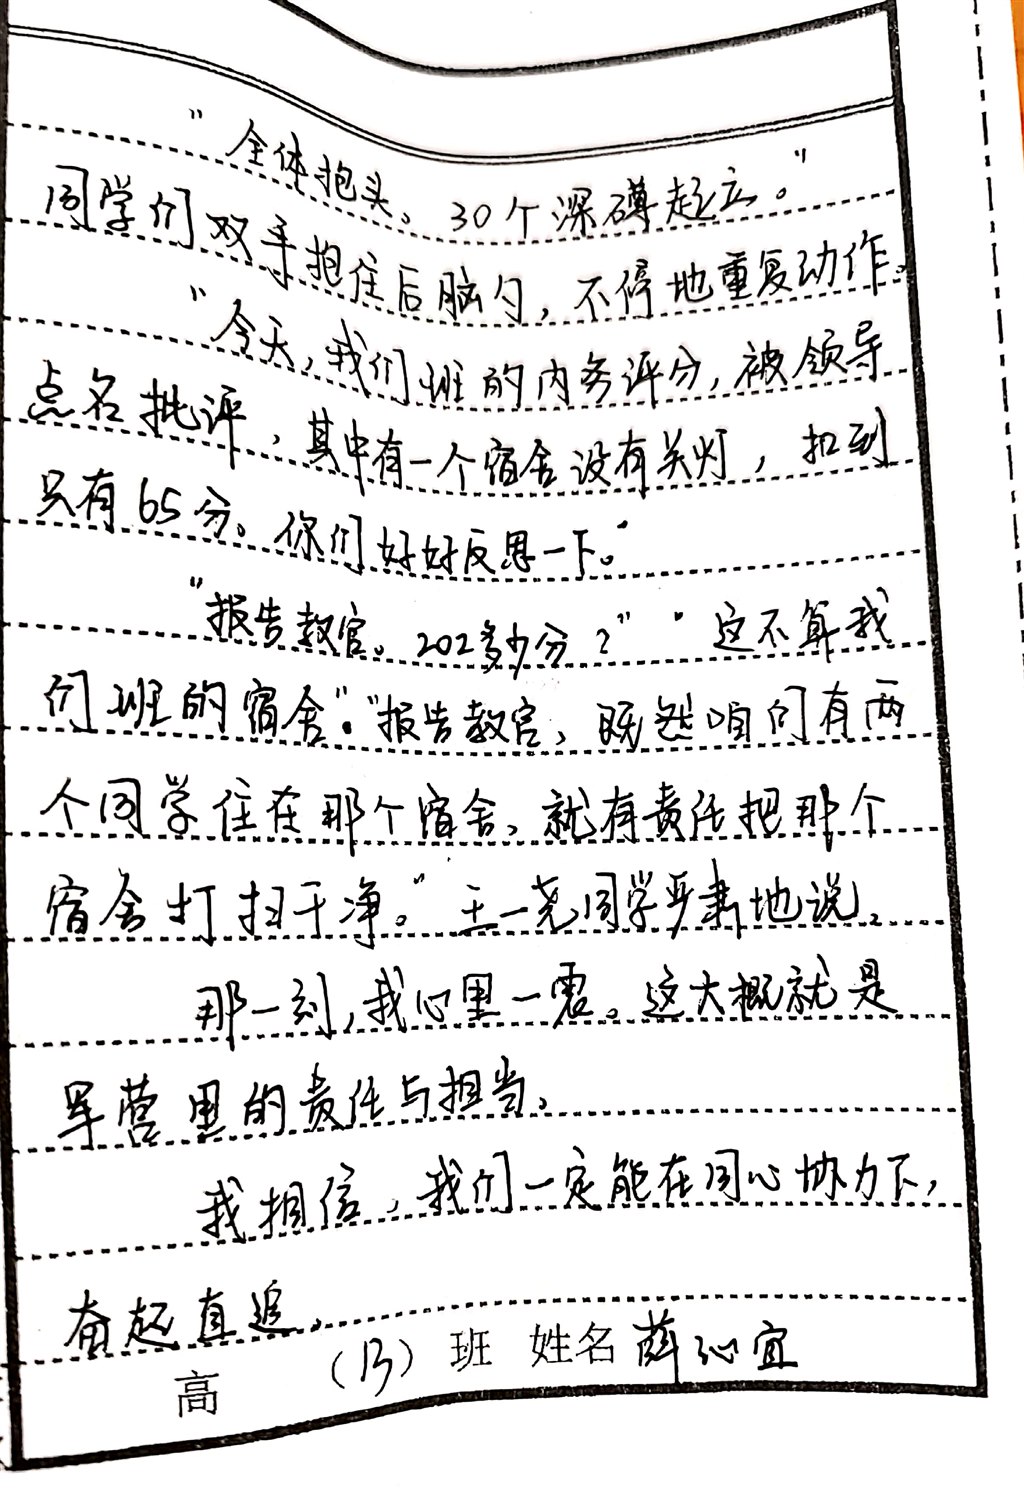 "全体抱头。30个深蹲起立。"
同学们双手抱住后脑勺，不停地重复动作。
"今天，我们班的内务评分，被领导
点名批评，其中有一个宿舍没有关灯，扣到
只有65分。你们好好反思一下。"
"报告教官。202多少分？""这不算我
们班的宿舍"。"报告教官，既然咱们有两
个同学住在那个宿舍、就有责任把那个
宿舍打扫干净。"王一尧同学严肃地说。
那一刻，我心里一震。这大概就是
军营里的责任与担当。
我相信，我们一定能在同心协力下，
奋起直追。
高 （13）班 姓名 薛沁宜